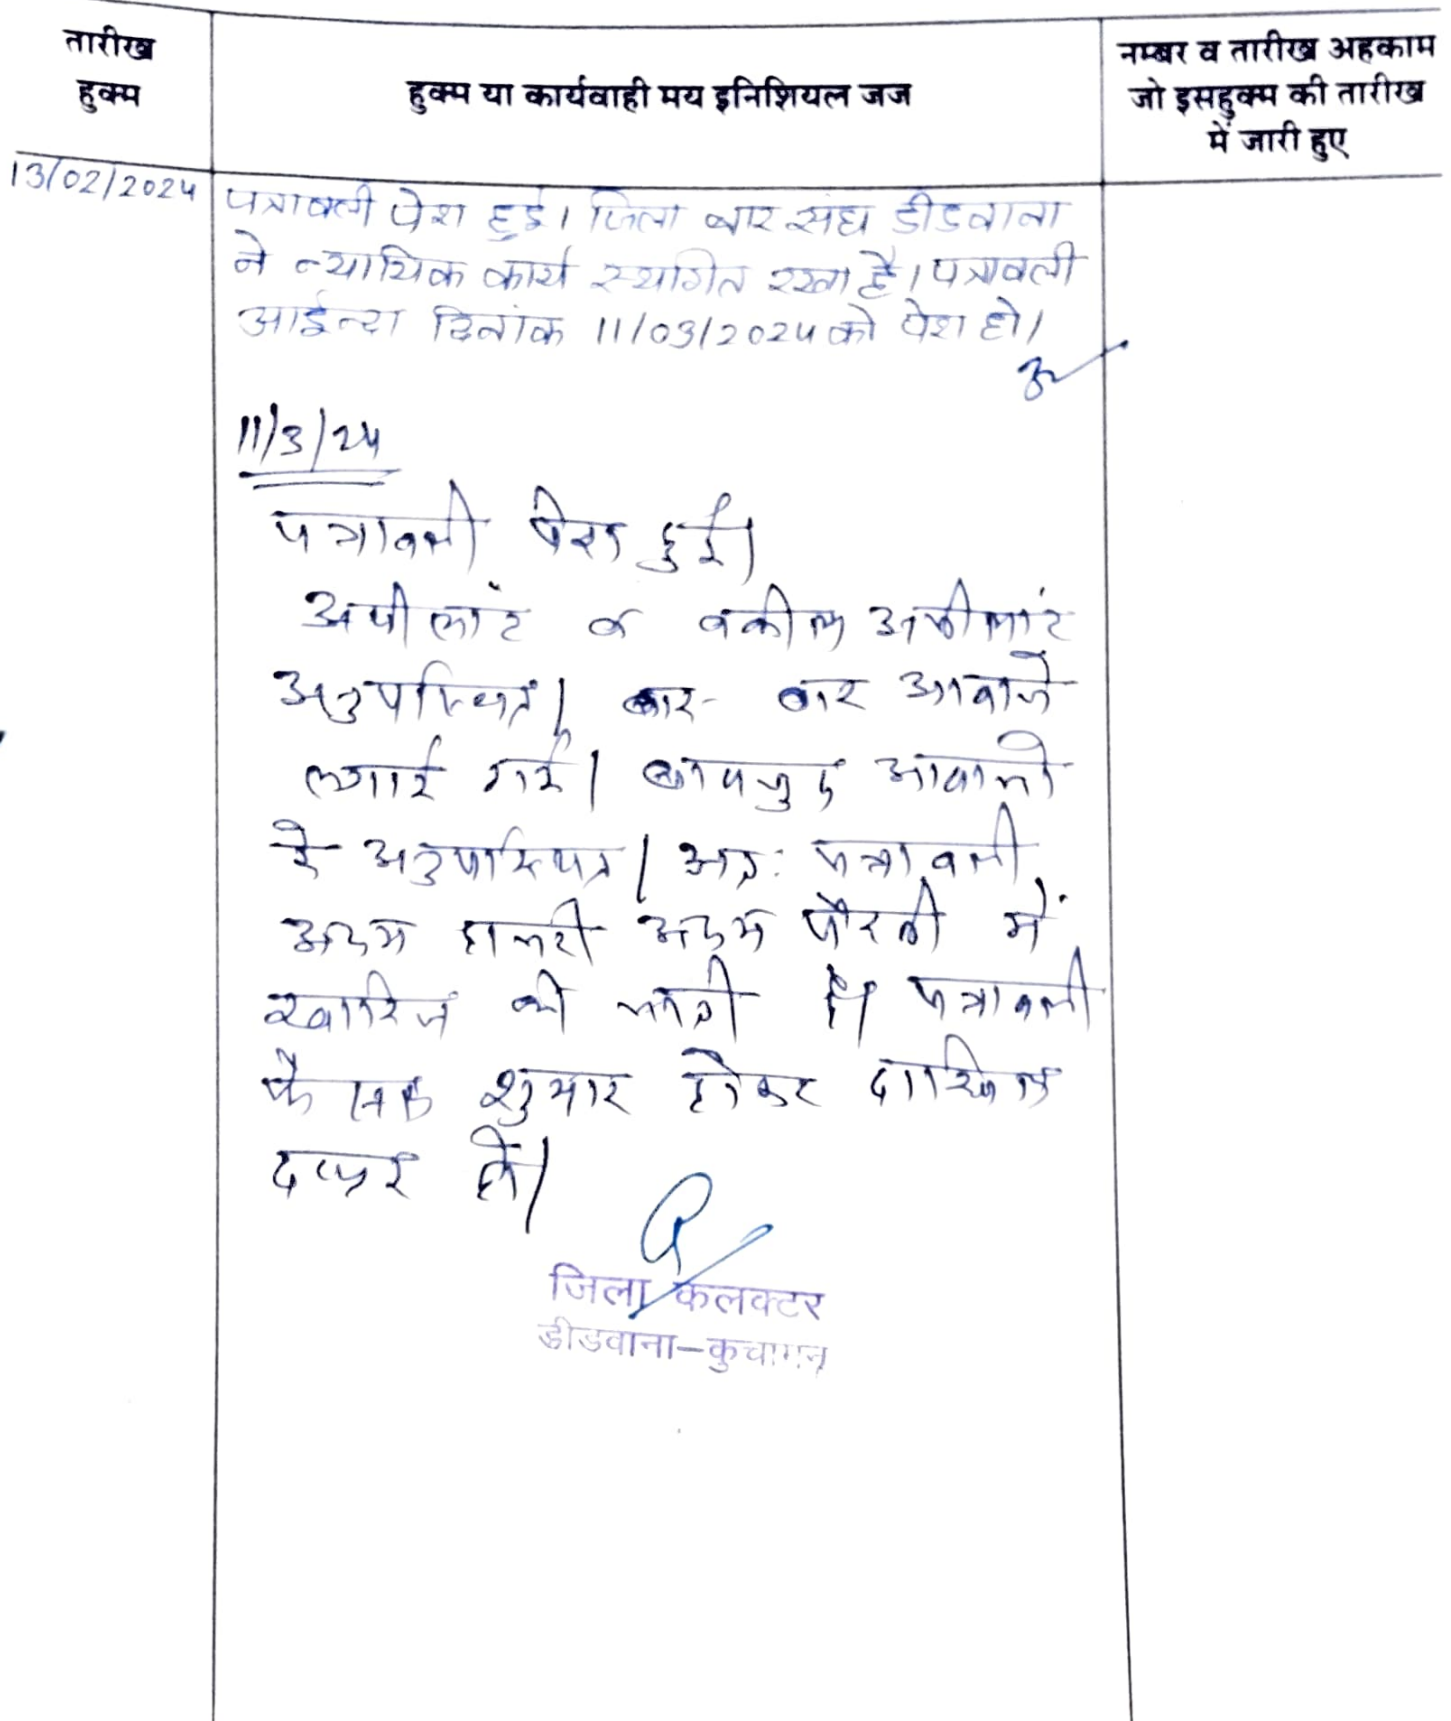 तारीख
हुक्म
हुक्म या कार्यवाही मय इनिशियल जज
नम्बर व तारीख अहकाम
जो इसहुक्म की तारीख
में जारी हुए
13/02/2024
पत्रावली पेश हुई। जिला बार संघ डीडवाना
ने न्यायिक कार्य स्थगित रखा है। पत्रावली
आईन्दा दिनांक 11/03/2024 को पेश हो।
11/3/24
पत्रावली पेश हुई।
अपीलांट व वकील अपीलांट
अनुपस्थित। बार-बार आवाजे
लगाई गई। बावजुद आवाजो
के अनुपस्थित। अतः पत्रावली
अदम हाजरी अदम पैरवी में
खारिज की जाती है। पत्रावली
फैसल शुमार होकर दाखिल
दफ्तर हो।
जिला कलक्टर
डीडवाना-कुचामन